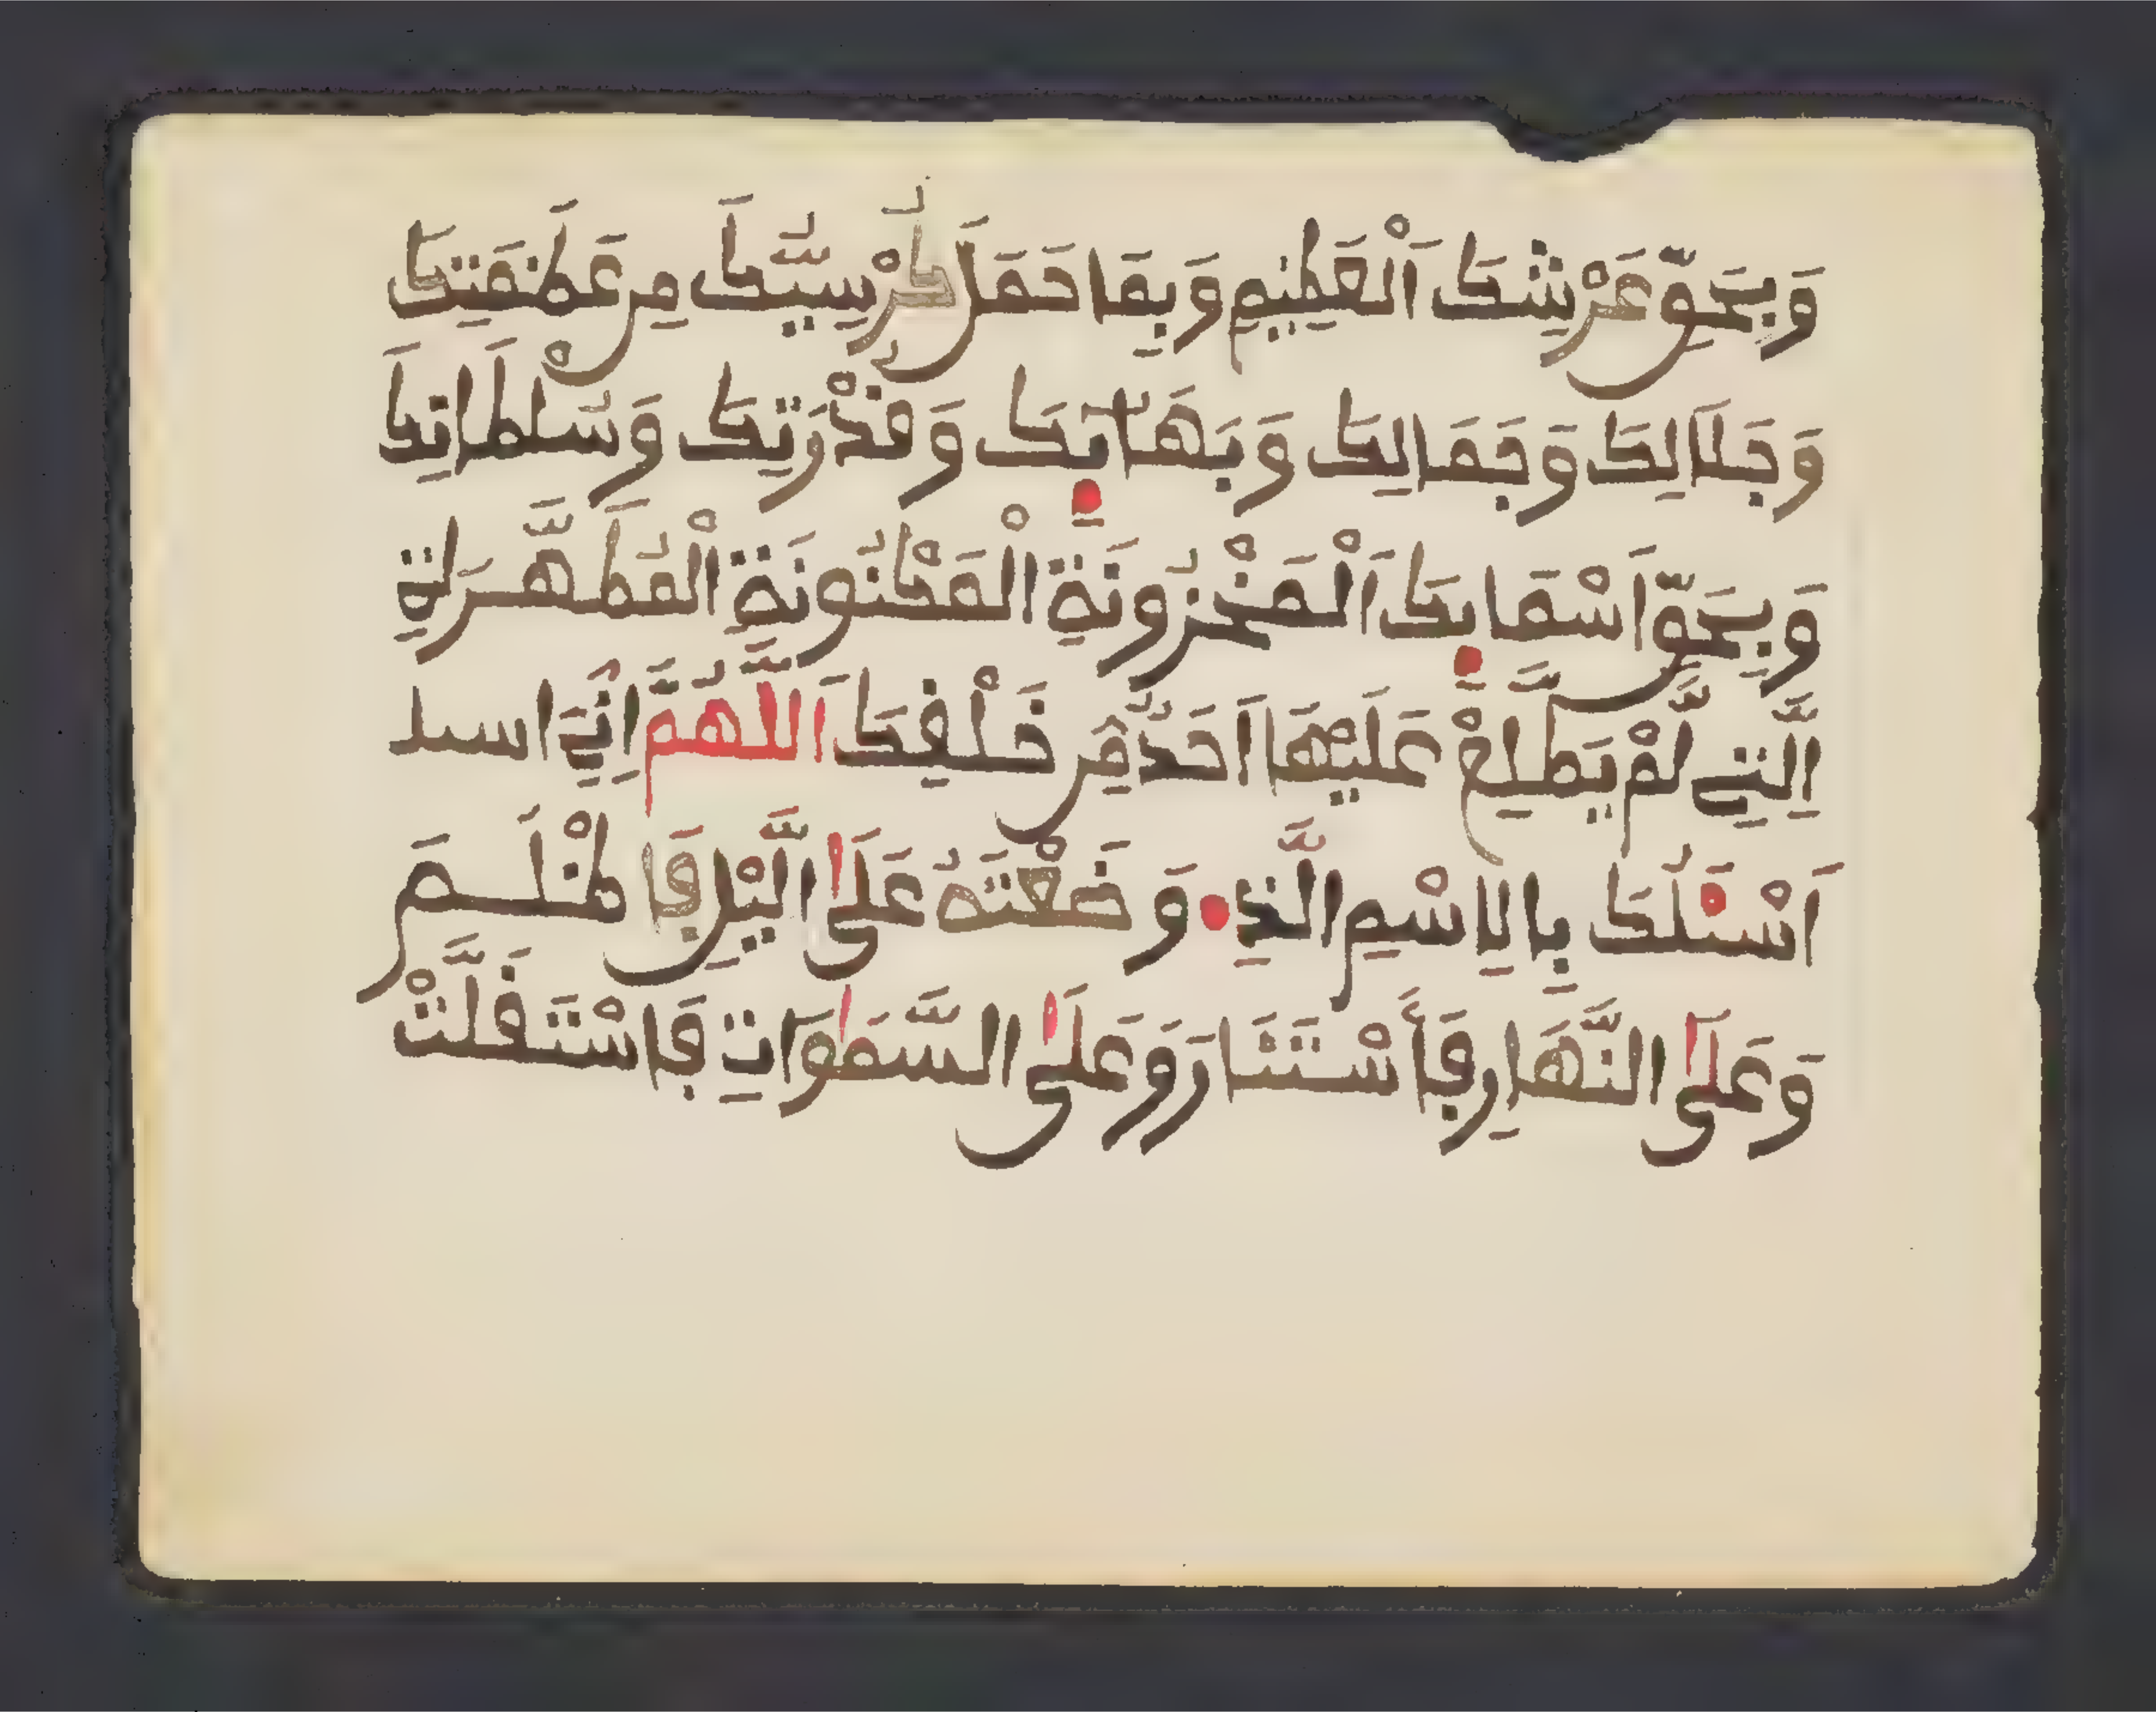 وَبِحَقِّ عَرْشِكَ اَلْعَظِيمِ وَبِمَا حَمَلَ كُرْسِيُّكَ مِن عَظَمَتِكَ
وَجَلَالِكَ وَجَمَالِكَ وَبَهَائِكَ وَقُدْرَتِكَ وَسُلْطَانِكَ
وَبِحَقِّ اَسْمَائِكَ اَلْمَخْزُونَةِ الْمَكْنُونَةِ الْمُطَهَّرَةِ
اِلَّتِے لَمْ يَطَّلِعْ عَلَيْهَا اَحَدٌ مِّن خَلْفِكَ اَللَّهُمَّ اِنِّے اسىلـ
اَسْـَٔلُكَ بِالِاسْمِ الَّذِے وَضَعْتَهُ عَلَى الَّيْلِ فَاظْلَمَ
وَعَلَى النَّهَارِ فَاَسْتَنَارَ وَعَلَى السَّمَٰوَاتِ فَاسْتَفَلَّتْ